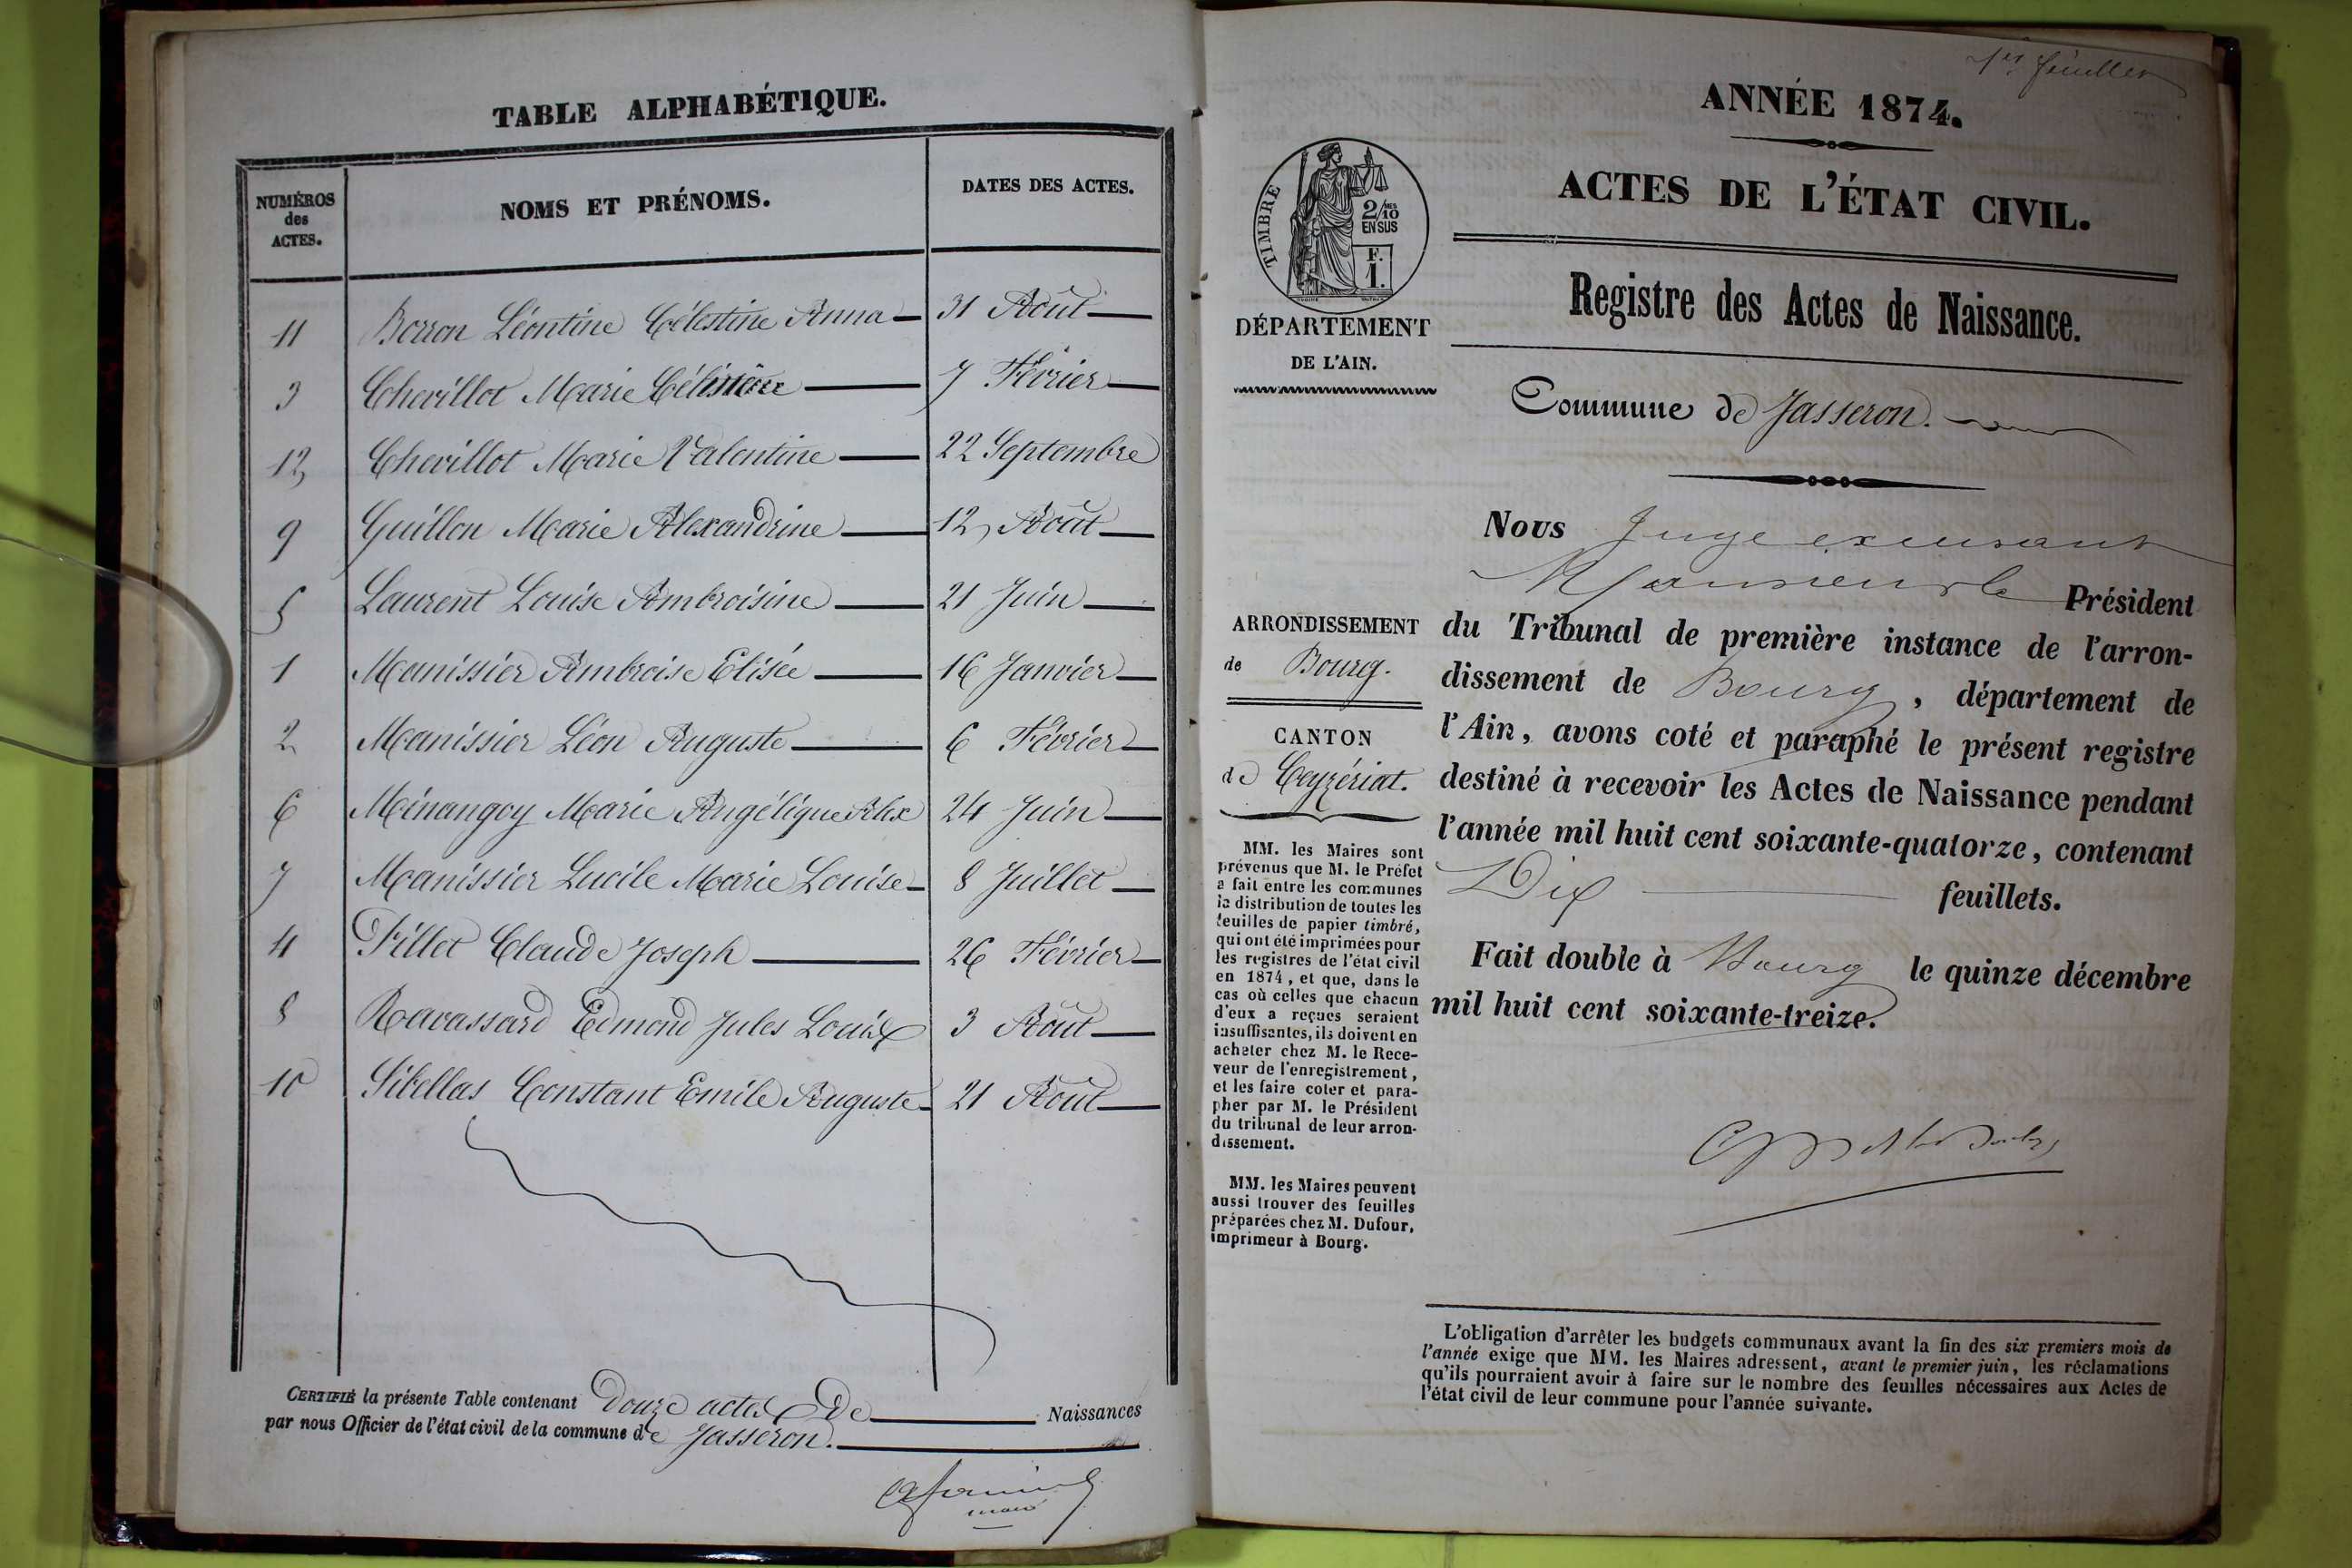 TABLE ALPHABÉTIQUE.
NUMÉROS des ACTES.
NOMS ET PRÉNOMS.
DATES DES ACTES.
11 Borron Léontine Célestine Anna 31 Août
3 Chevillot Marie 7 Février
12 Chevillot Marie Valentine 22 Septembre
9 Guillon Marie Alexandrine 12 Août
5 Laurent Louise Ambroisine 21 Juin
1 Manissier Ambroise Elisée 16 Janvier
2 Manissier Léon Auguste 6 Février
6 Minangoy Marie Angélique Alix 24 Juin
7 Manissier Lucile Marie Louise 8 Juillet
4 Pillet Claude Joseph 26 Février
8 Ravassard Edmond Jules Louis 3 Août
10 Sibellas Constant Emile Auguste 21 Août
CERTIFIÉ la présente Table contenant Douze actes De Naissances
par nous Officier de l'état civil de la commune de Jasseron.
maire
1er feuillet
ANNÉE 1874.
ACTES DE L'ÉTAT CIVIL.
Registre des Actes de Naissance.
Commune de Jasseron.
TIMBRE
2/10 MES
EN SUS
F.
1.
DÉPARTEMENT
DE L'AIN.
ARRONDISSEMENT
de Bourg.
CANTON
de Ceyzériat.
MM. les Maires sont
prévenus que M. le Préfet
a fait entre les communes
la distribution de toutes les
feuilles de papier timbré,
qui ont été imprimées pour
les registres de l'état civil
en 1874, et que, dans le
cas où celles que chacun
d'eux a reçues seraient
insuffisantes, ils doivent en
acheter chez M. le Rece-
veur de l'enregistrement,
et les faire coter et para-
pher par M. le Président
du tribunal de leur arron-
dissement.
MM. les Maires peuvent
aussi trouver des feuilles
préparées chez M. Dufour,
imprimeur à Bourg.
Nous Juge
Monsieur le Président
du Tribunal de première instance de l'arron-
dissement de Bourg, département de
l'Ain, avons coté et paraphé le présent registre
destiné à recevoir les Actes de Naissance pendant
l'année mil huit cent soixante-quatorze, contenant
Dix feuillets.
Fait double à Bourg le quinze décembre
mil huit cent soixante-treize.
L'obligation d'arrêter les budgets communaux avant la fin des six premiers mois de
l'année exige que MM. les Maires adressent, avant le premier juin, les réclamations
qu'ils pourraient avoir à faire sur le nombre des feuilles nécessaires aux Actes de
l'état civil de leur commune pour l'année suivante.